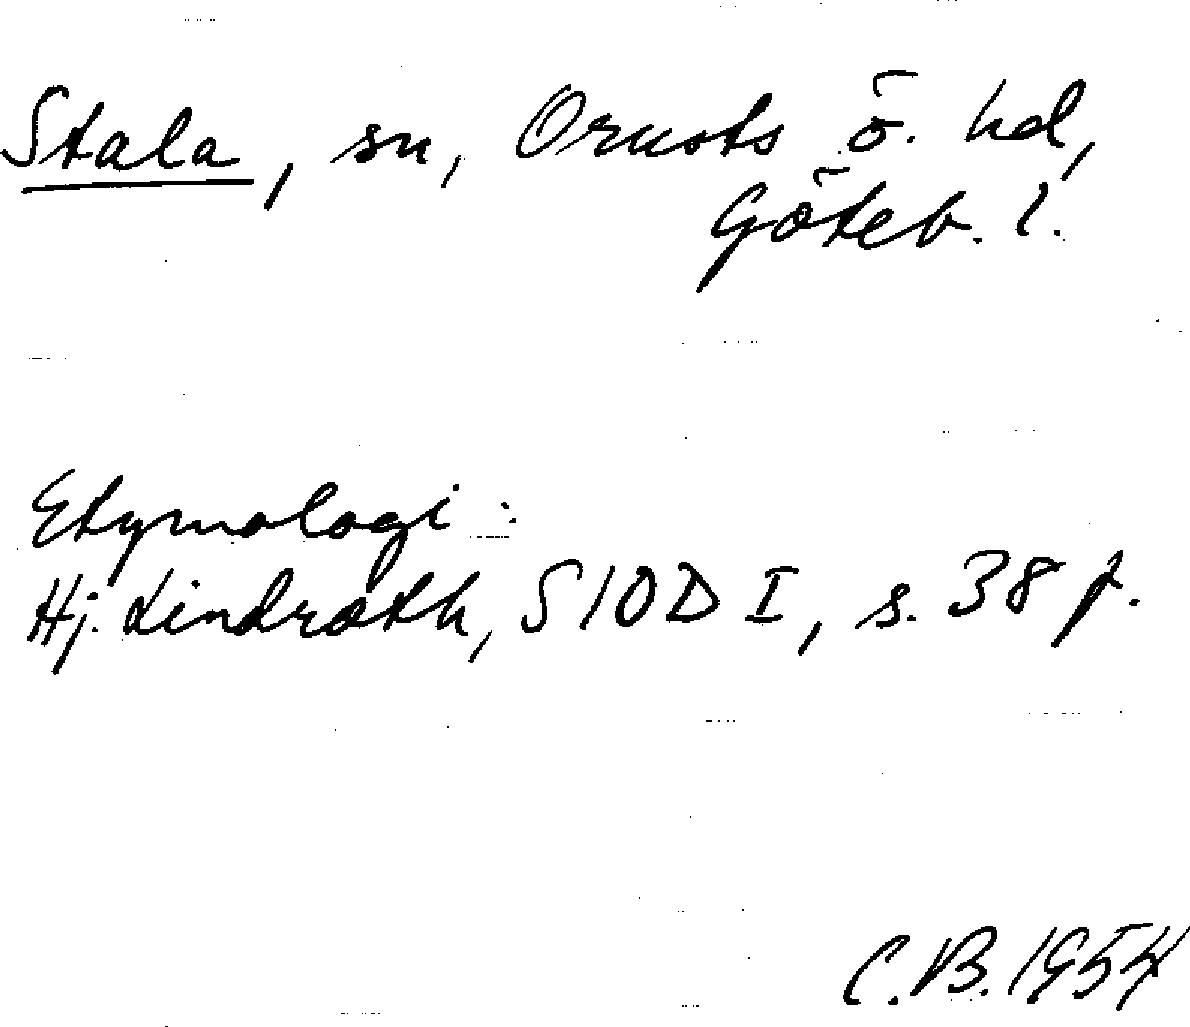 Stala, sn, Orusts ö. hd,
Göteb. l.
Etymologi:
Hj. Lindroth, SIOD I, s. 38 f.
C.B. 1954